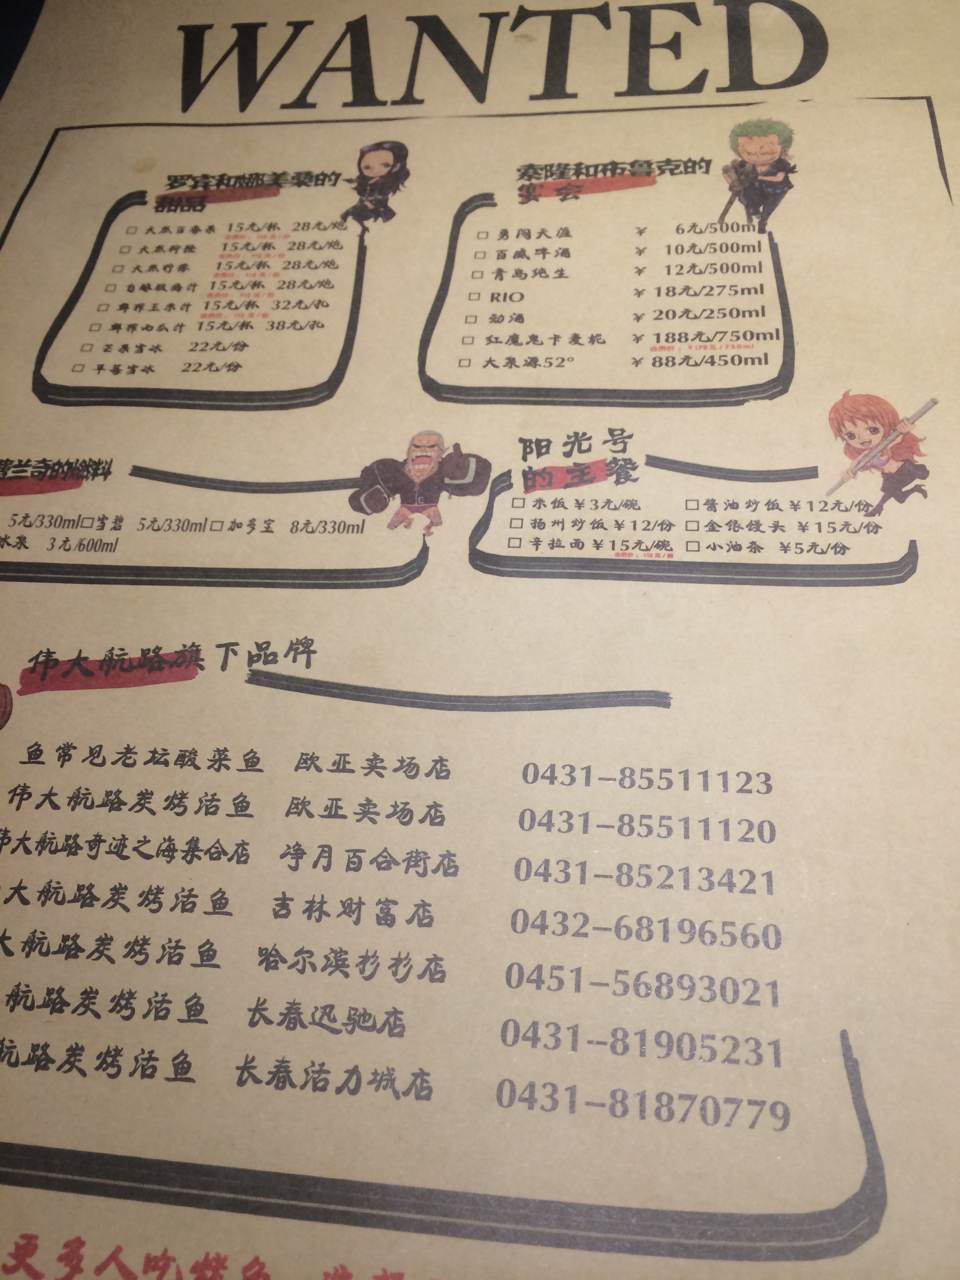 WANTED
罗宾和娜美桑的
甜品
□ 大燕百香果 15元/杯 28元/炮
□ 大燕柠檬 15元/杯 28元/炮
□ 大燕柠蜜 15元/杯 28元/炮
□ 自酿酸梅汁 15元/杯 28元/炮
□ 鲜榨玉米汁 15元/杯 32元/扎
□ 鲜榨西瓜汁 15元/杯 38元/扎
□ 芒果雪冰 22元/份
□ 草莓雪冰 22元/份
索隆和布鲁克的
宴会
□ 勇闯天涯 ¥ 6元/500ml
□ 百威啤酒 ¥ 10元/500ml
□ 青岛纯生 ¥ 12元/500ml
□ RIO ¥ 18元/275ml
□ 劲酒 ¥ 20元/250ml
□ 红魔鬼卡麦妮 ¥ 188元/750ml
□ 大泉源52° ¥ 88元/450ml
弗兰奇的燃料
5元/330ml□雪碧 5元/330ml□加多宝 8元/330ml
冰泉 3元/600ml
阳光号
的主餐
□ 米饭¥3元/碗 □ 酱油炒饭¥12元/份
□ 扬州炒饭¥12/份 □ 金银馒头 ¥15元/份
□ 辛拉面¥15元/碗 □ 小油条 ¥5元/份
伟大航路旗下品牌
鱼常见老坛酸菜鱼 欧亚卖场店 0431-85511123
伟大航路炭烤活鱼 欧亚卖场店 0431-85511120
伟大航路奇迹之海集合店 净月百合街店 0431-85213421
大航路炭烤活鱼 吉林财富店 0432-68196560
大航路炭烤活鱼 哈尔滨杉杉店 0451-56893021
航路炭烤活鱼 长春迅驰店 0431-81905231
航路炭烤活鱼 长春活力城店 0431-81870779
更多人吃烤鱼